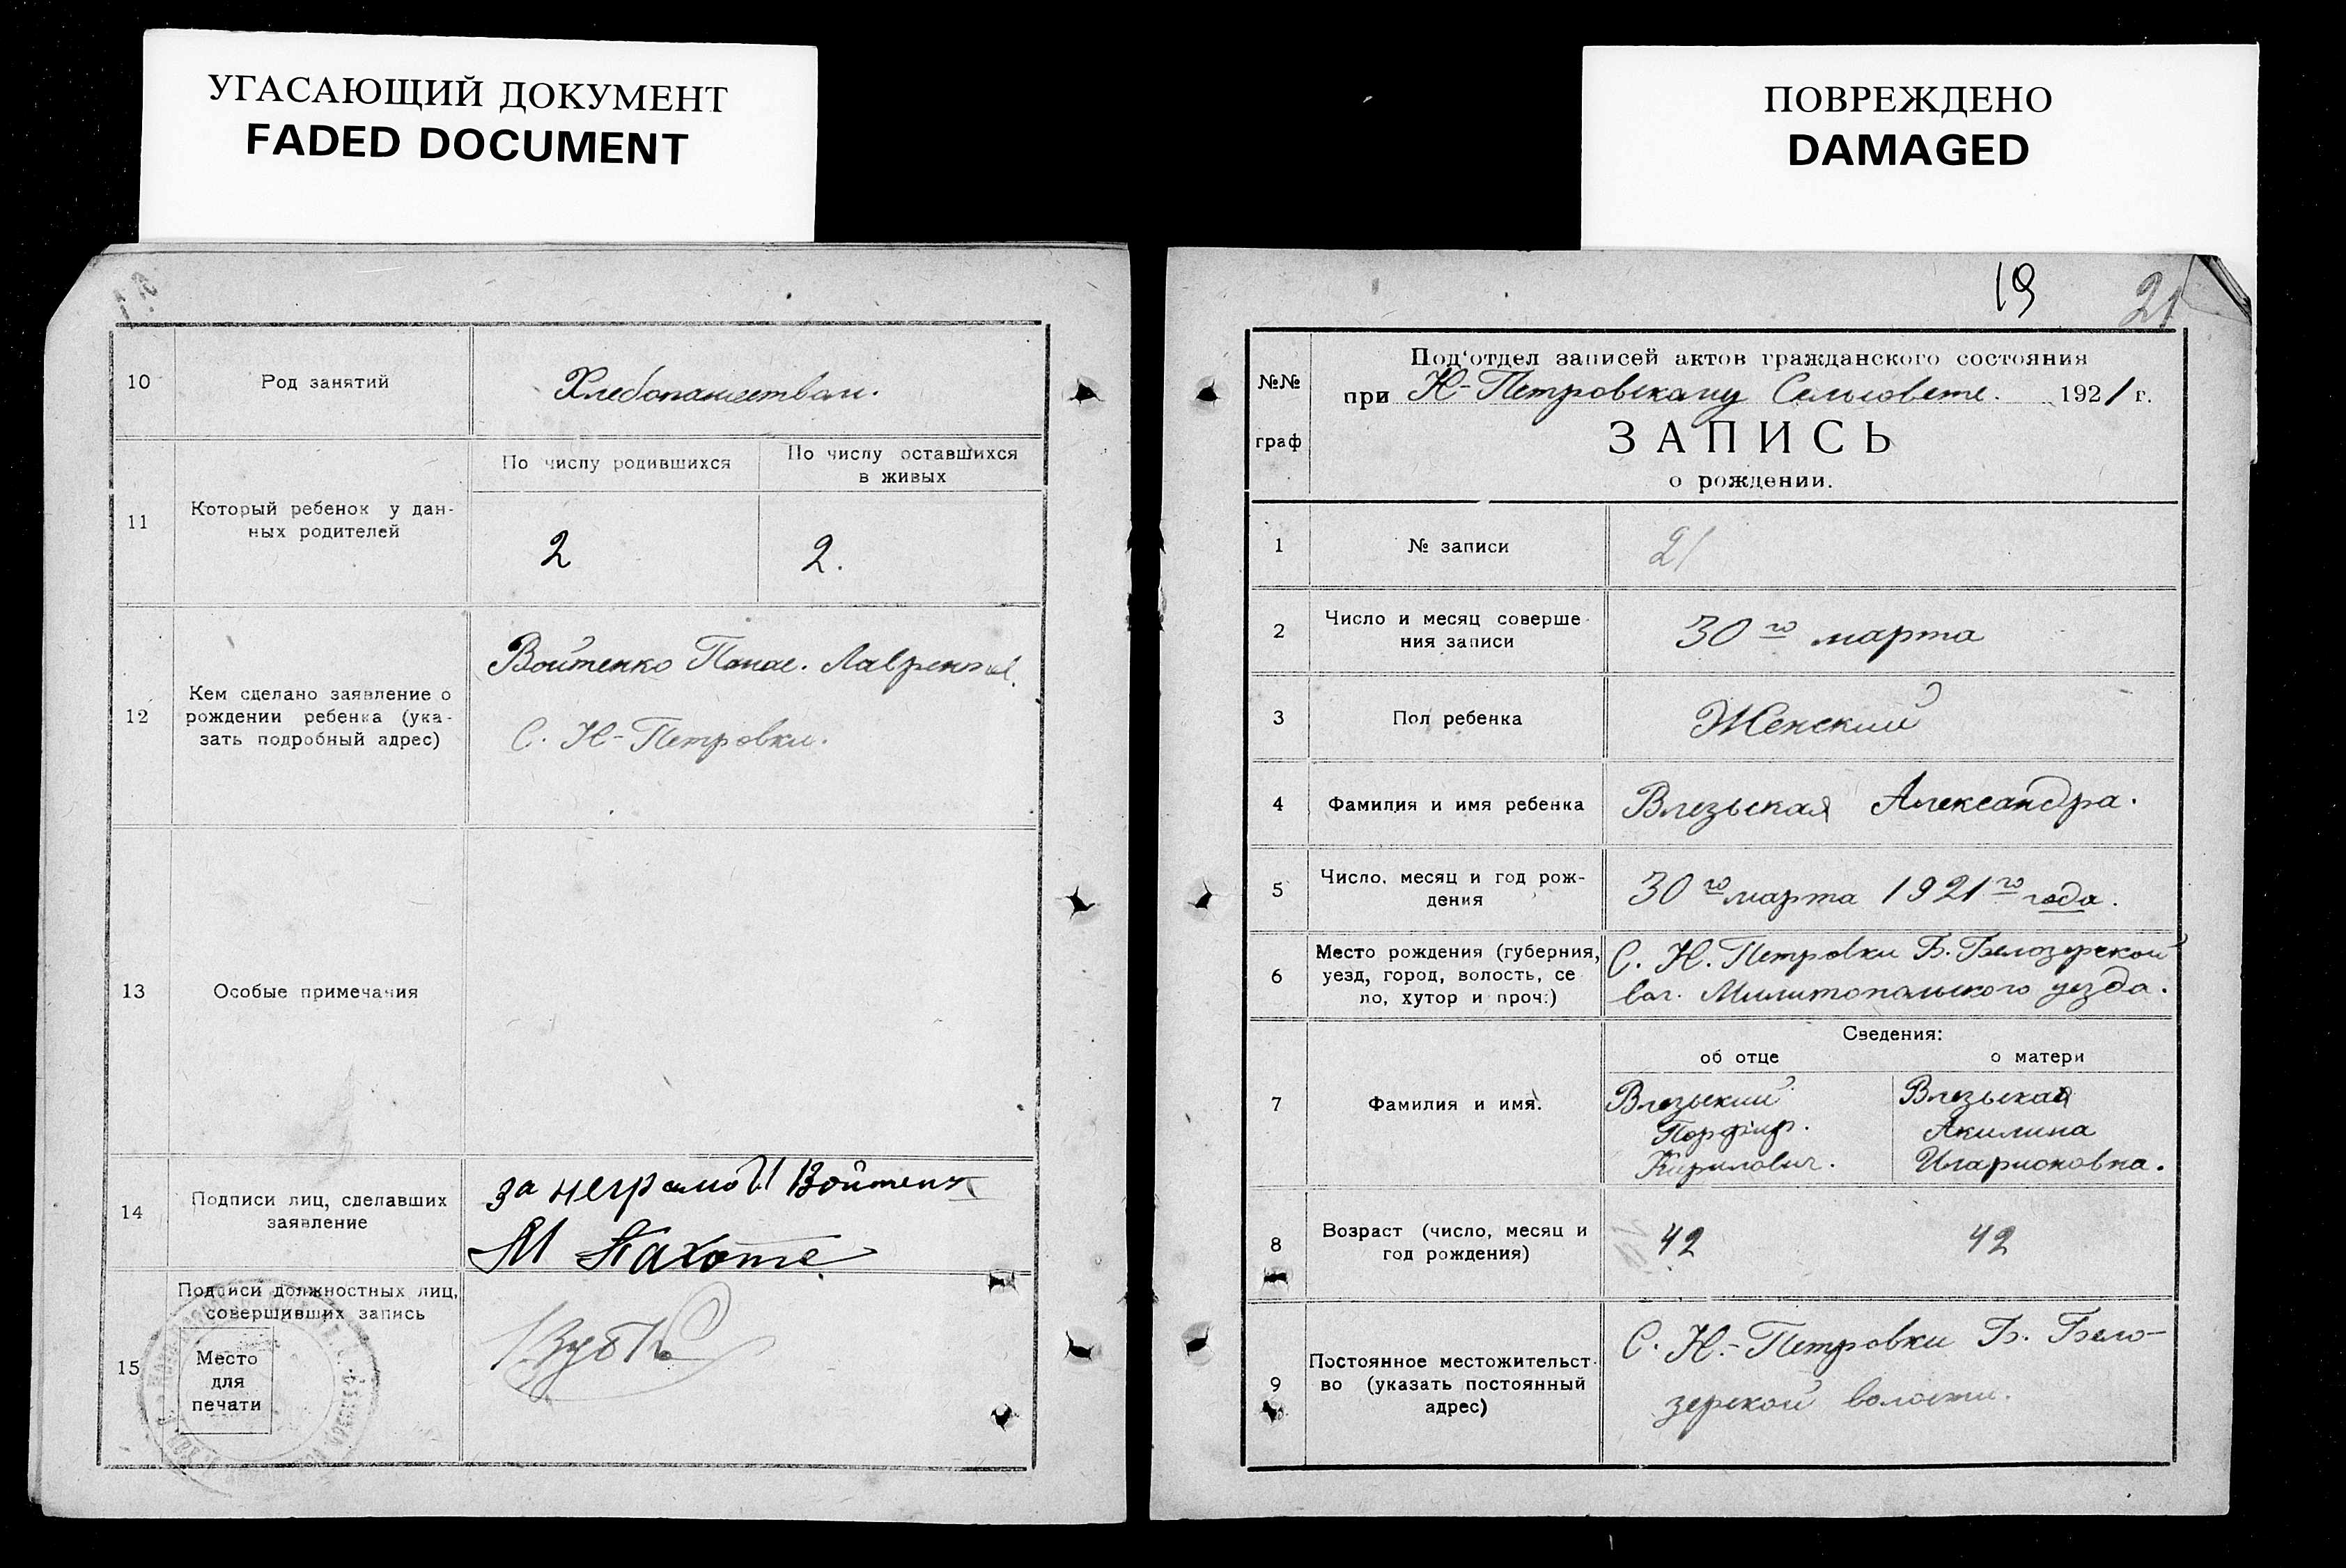 УГАСАЮЩИЙ ДОКУМЕНТ
FADED DOCUMENT
10
Род занятий
Хлебопашеством.
11
Который ребенок у дан-
ных родителей
По числу родившихся
По числу оставшихся
в живых
2
2.
12
Кем сделано заявление о
рождении ребенка (ука-
зать подробный адрес)
Войтенко Панас.
С. Н-Петровки.
13
Особые примечания
14
Подписи лиц, сделавших
заявление
за неграмот
М
15
Подписи должностных лиц,
совершивших запись
Место
для
печати
ПОВРЕЖДЕНО
DAMAGED
19
21
№№
граф
Под'отдел записей актов гражданского состояния
при Н-Петровскому Сельсовете. 1921 г.
ЗАПИСЬ
о рождении.
1
№ записи
21
2
Число и месяц соверше-
ния записи
30го марта
3
Пол ребенка
Женский
4
Фамилия и имя ребенка
Влезьская Александра.
5
Число, месяц и год рож-
дения
30го марта 1921го года.
6
Место рождения (губерния,
уезд, город, волость, се
ло, хутор и проч.)
С. Н. Петровки Б. Белозерской
вол. Милитопольского уезда.
7
Фамилия и имя.
Сведения:
об отце
о матери
Влезьский
Порфир.
Кирилович.
Влезьская
Акилина
Иларионовна.
8
Возраст (число, месяц и
год рождения)
42
42
9
Постоянное местожительст-
во (указать постоянный
адрес)
С. Н.-Петровки Б. Бело-
зерской волости.